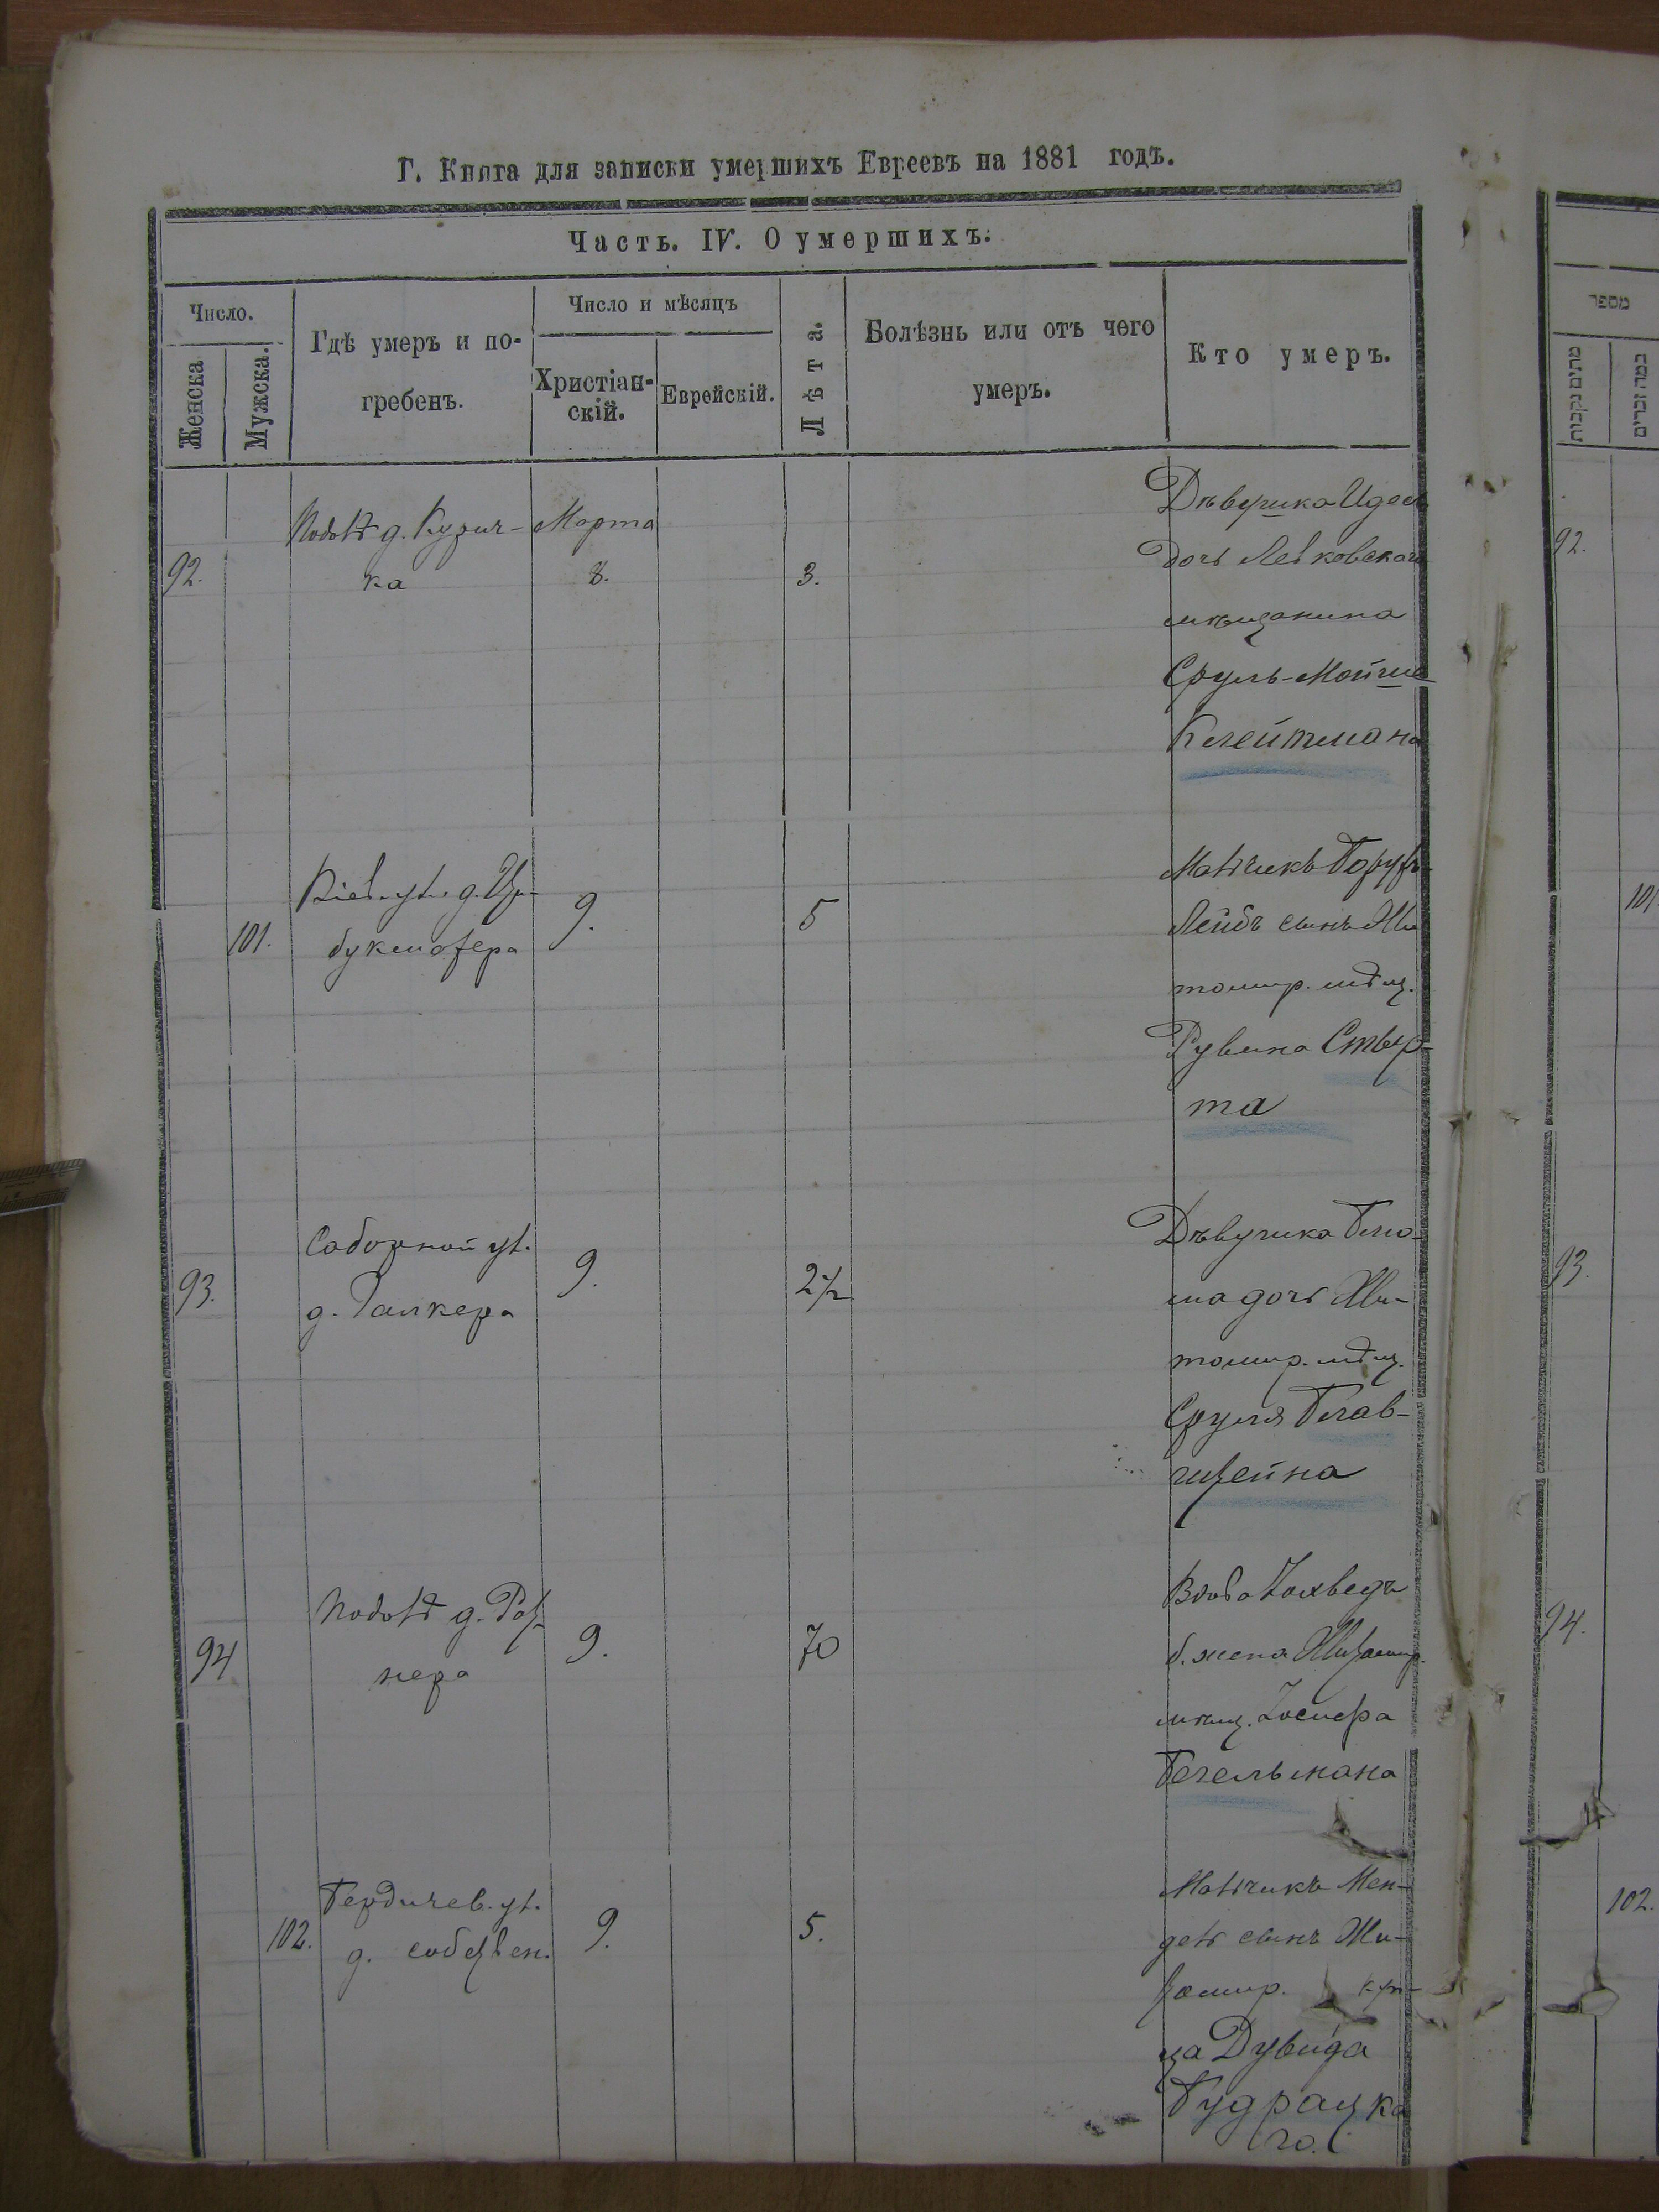 Г. Книга для записки умершихъ Евреевъ на 1881 годъ.
Часть. IV. О умершихъ.
Число.
Женска
Мужска.
Гдѣ умеръ и по-
гребенъ.
Число и мѣсяцъ
Христіан-
скій.
Еврейскій.
Лѣта.
Болѣзнь или отъ чего
умеръ.
Кто умеръ.
92.
Подолѣ д. Кузич-
ка
Марта
8.
3.
Дѣвушка
дочь
мѣщанина
Сруль-Мойше
Клейтмана
101.
Кіев. ул. д.
9.
5
Мальчикъ Борухъ-
Лейбъ сынъ Жи
томир. мѣщ.
Рувина Стыр-
та
93.
Соборной ул.
д. Галкера
9.
2 1/2
Дѣвушка
ма дочь Жи-
томир. мѣщ.
Сруля Блав-
штейна
94
Подолѣ д.
нера
9.
70
Вдова Іохведъ
б. жена Житомир.
мѣщ. Іосифа
Бегельмана
102.
Бердичев. ул.
д. собствен.
9.
5.
Мальчикъ Мен-
дель сынъ Жи-
томир. куп-
ца Дувида
Будрацка
го.
מספר
מתים נקבות
כמה זכרים
92.
101.
93.
94.
102.